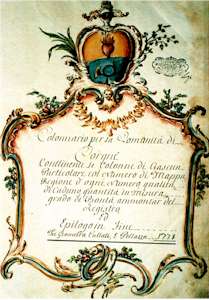 Colonnario per la Comunità di
Corgnè
Continenti le Colonne di Ciascun
Particolare col Numero di Mappa
Regione d'ogni Numero qualità
di Cadun quantità in misura
grado di Bontà ammontar del
Registro
Ed
Epilogo in fine
1771